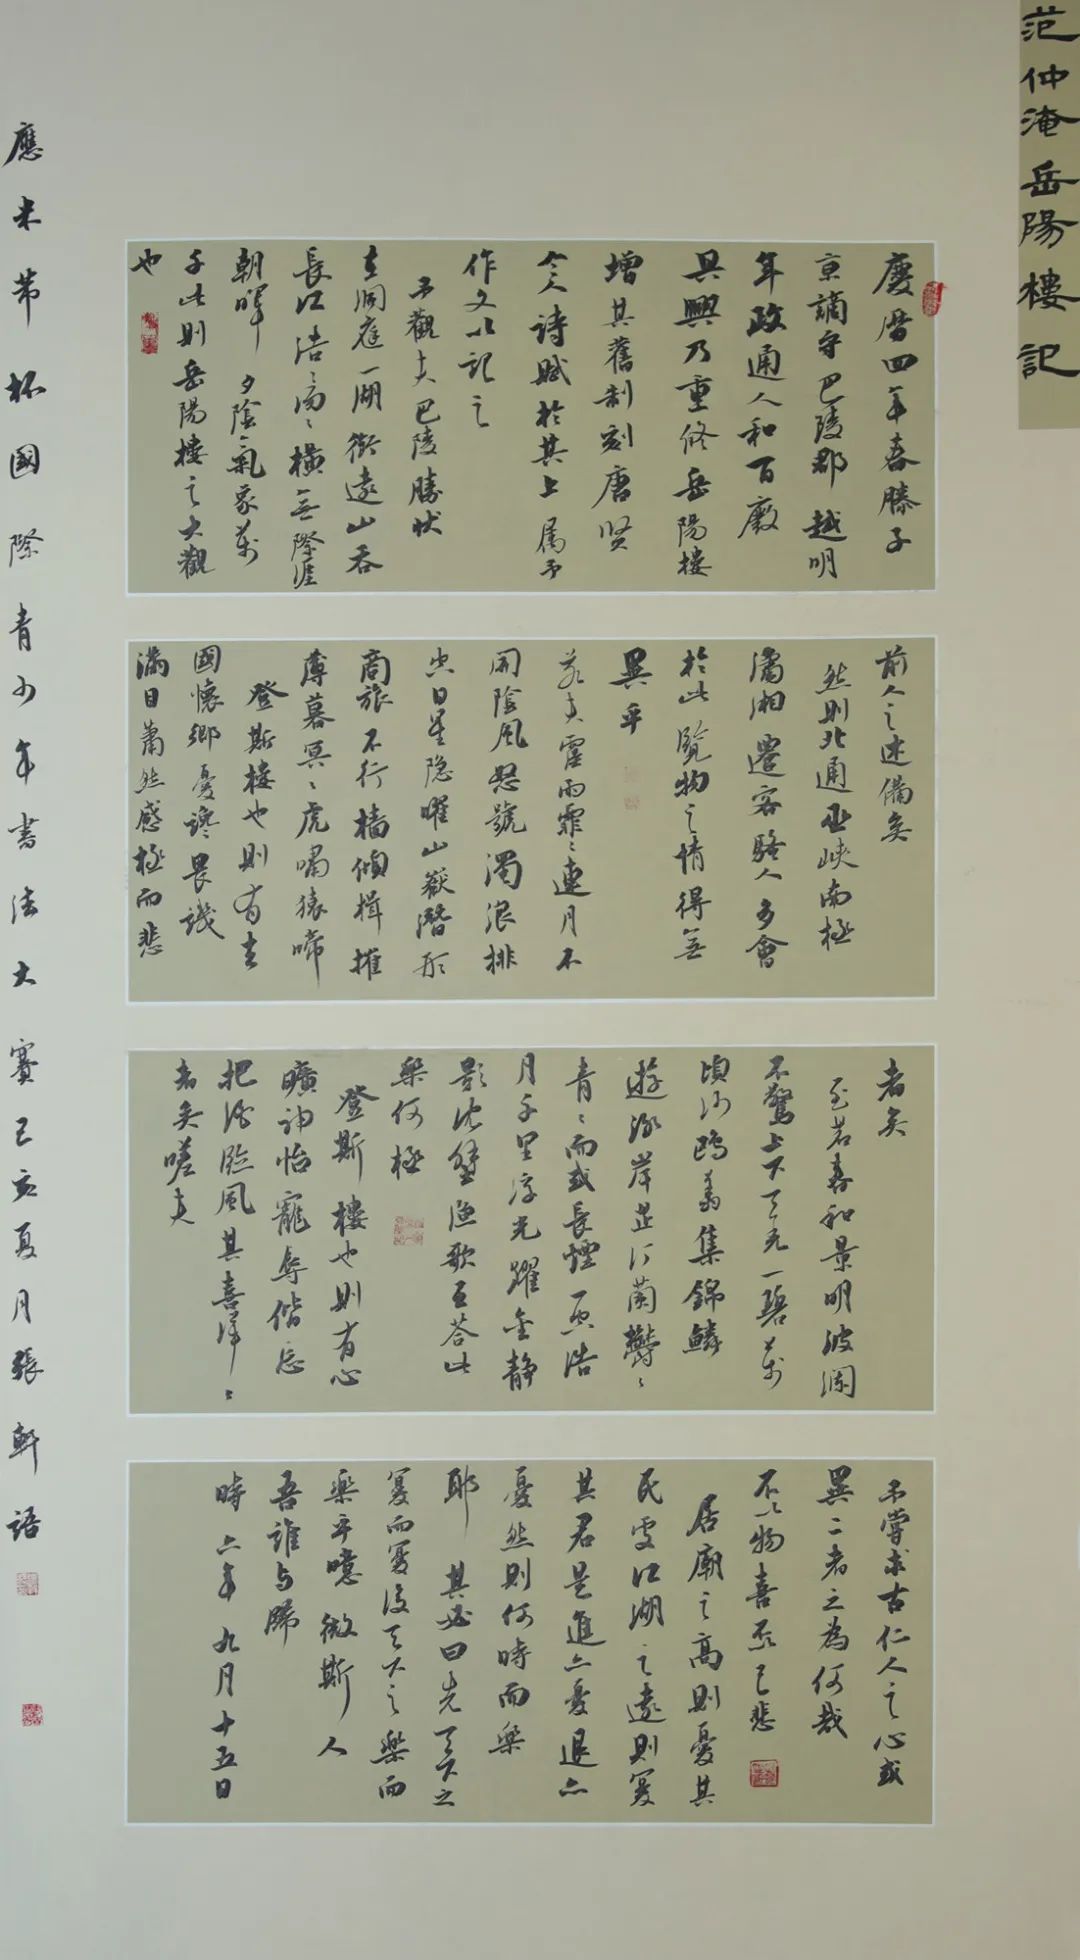 范仲淹岳陽樓記
慶曆四年春滕子
京謫守巴陵郡越明
年政通人和百廢
具興乃重修岳陽樓
增其舊制刻唐賢
今人詩賦於其上属予
作文以記之
予觀夫巴陵勝狀
在洞庭一湖銜遠山吞
長江浩〻湯〻橫無際涯
朝暉夕陰氣象萬
千此則岳陽樓之大觀
也
前人之述備矣
然則北通巫峽南極
瀟湘遷客騷人多會
於此覽物之情得無
異乎
若夫霪雨霏〻連月不
開陰風怒號濁浪排
空日星隱曜山嶽潛形
商旅不行檣傾楫摧
薄暮冥〻虎嘯猿啼
登斯樓也則有去
國懷鄉憂讒畏譏
滿目蕭然感極而悲
者矣
至若春和景明波瀾
不驚上下天光一碧萬
頃沙鷗翔集錦鱗
遊泳岸芷汀蘭鬱〻
青〻而或長煙一空浩
月千里浮光躍金静
影沈璧漁歌互答此
樂何極
登斯樓也則有心
曠神怡寵辱偕忘
把酒臨風其喜洋〻
者矣嗟夫
予嘗求古仁人之心或
異二者之為何哉
不以物喜不以己悲
居廟之高則憂其
民處江湖之遠則憂
其君是進亦憂退亦
憂然則何時而樂
耶其必曰先天下之
憂而憂後天下之樂而
樂乎噫微斯人
吾誰与歸
時六年九月十五日
應米芾杯國際青少年書法大賽己亥夏月張軒語